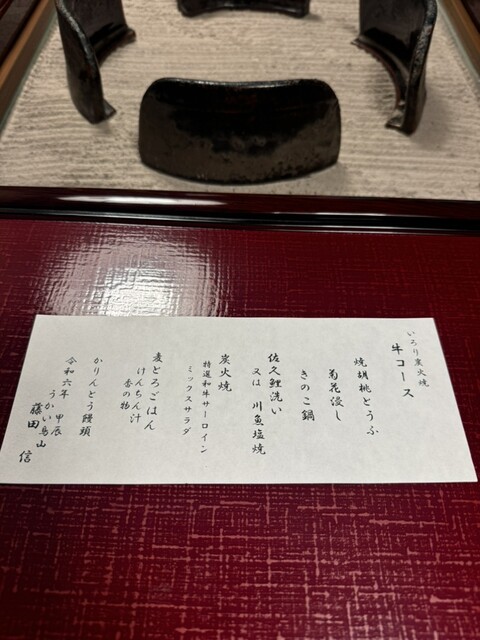 いろり炭火焼
牛コース
焼胡桃とうふ
菊花浸し
きのこ鍋
佐久鯉洗い
又は 川魚塩焼
炭火焼
特選和牛サーロイン
ミックスサラダ
麦とろごはん
けんちん汁
香の物
かりんとう饅頭
令和六年 甲辰
うかい鳥山
藤田 信